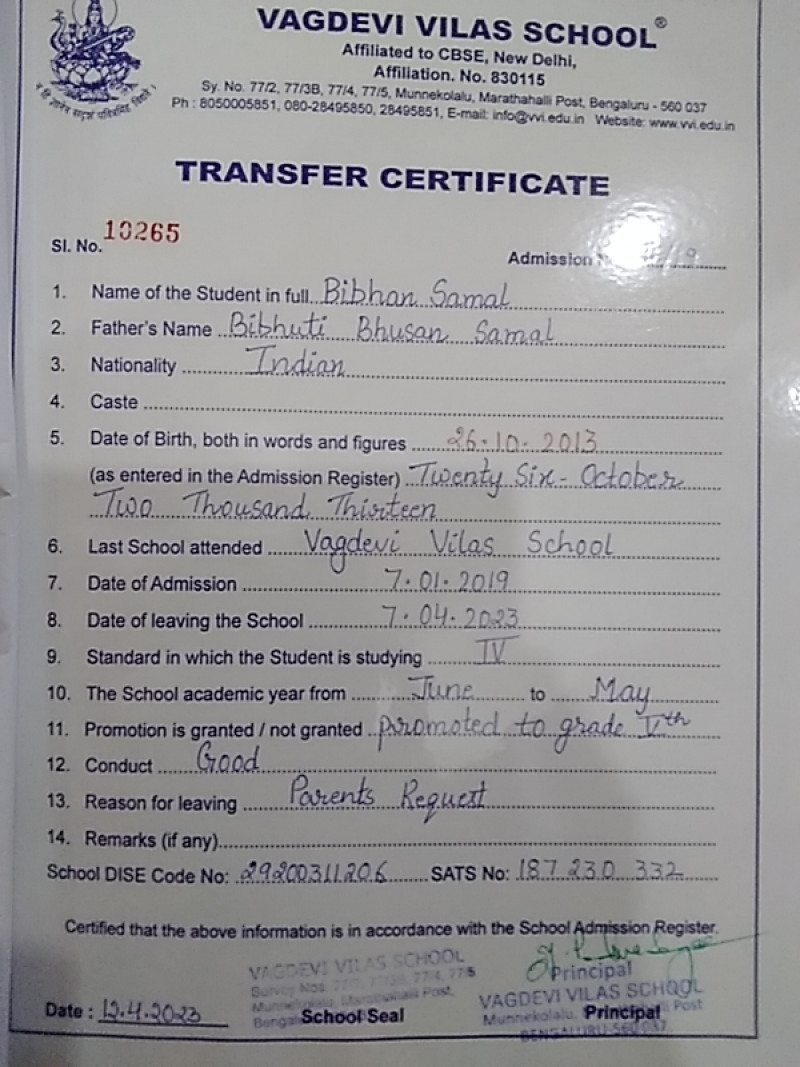 VAGDEVI VILAS SCHOOL®
Affiliated to CBSE, New Delhi,
Affiliation. No. 830115
Sy. No. 77/2, 77/3B, 77/4, 77/5, Munnekolalu, Marathahalli Post, Bengaluru - 560 037
Ph : 8050005851, 080-28495850, 28495851, E-mail: info@vvi.edu.in Website: www.vvi.edu.in
TRANSFER CERTIFICATE
Sl. No. 10265
Admission /19
1. Name of the Student in full Bibhan Samal
2. Father's Name Bibhuti Bhusan Samal
3. Nationality Indian
4. Caste
5. Date of Birth, both in words and figures 26.10.2013
(as entered in the Admission Register) Twenty Six - October
Two Thousand Thirteen
6. Last School attended Vagdevi Vilas School
7. Date of Admission 7.01.2019
8. Date of leaving the School 7.04.2023
9. Standard in which the Student is studying IV
10. The School academic year from June to May
11. Promotion is granted / not granted promoted to grade Vth
12. Conduct Good
13. Reason for leaving Parents Request
14. Remarks (if any)
School DISE Code No: 29200311206 SATS No: 187 230 332
Certified that the above information is in accordance with the School Admission Register.
VAGDEVI VILAS SCHOOL
Survey Nos. 77/4, 77/5
Munnekolalu, Marathahalli Post,
School Seal
Principal
VAGDEVI VILAS SCHOOL
Munnekolalu, Marathahalli Post
Principal
BENGALURU-560 037
Date : 12.4.2023